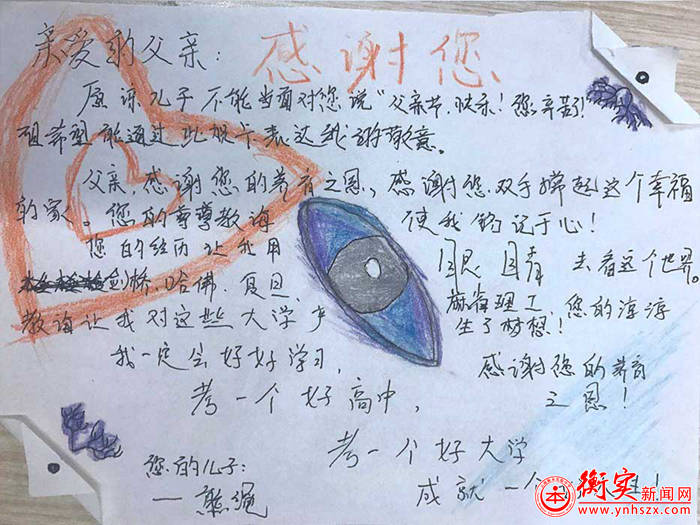 亲爱的父亲： 感谢您
原谅儿子不能当面对您说“父亲节，快乐！您辛苦了！
但希望能通过此贺卡表达我的敬意。
父亲，感谢您的养育之恩，感谢您双手撑起这个幸福
的家。您的尊尊教诲 使我铭记于心！
您的经历让我用 眼睛 去看这个世界。
剑桥、哈佛、复旦、麻省理工，您的淳淳
教诲让我对这些大学产 生了梦想！
我一定会好好学习， 感谢您的养育
考一个好高中， 之恩！
考一个好大学
您的儿子： 成就一个
衡实新闻网
www.ynhszx.com